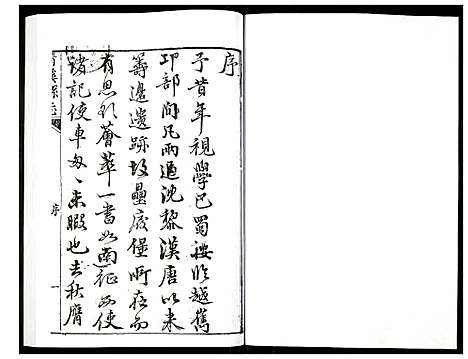 序
予昔年視學巴蜀按臨越嶲
邛部間凡兩過沈黎漢唐以來
籌邊遺跡故壘廢堡所在而
有思欲薈萃一書如南征西使
諸記使車匆、未暇也去秋膺
清溪縣志
序
一